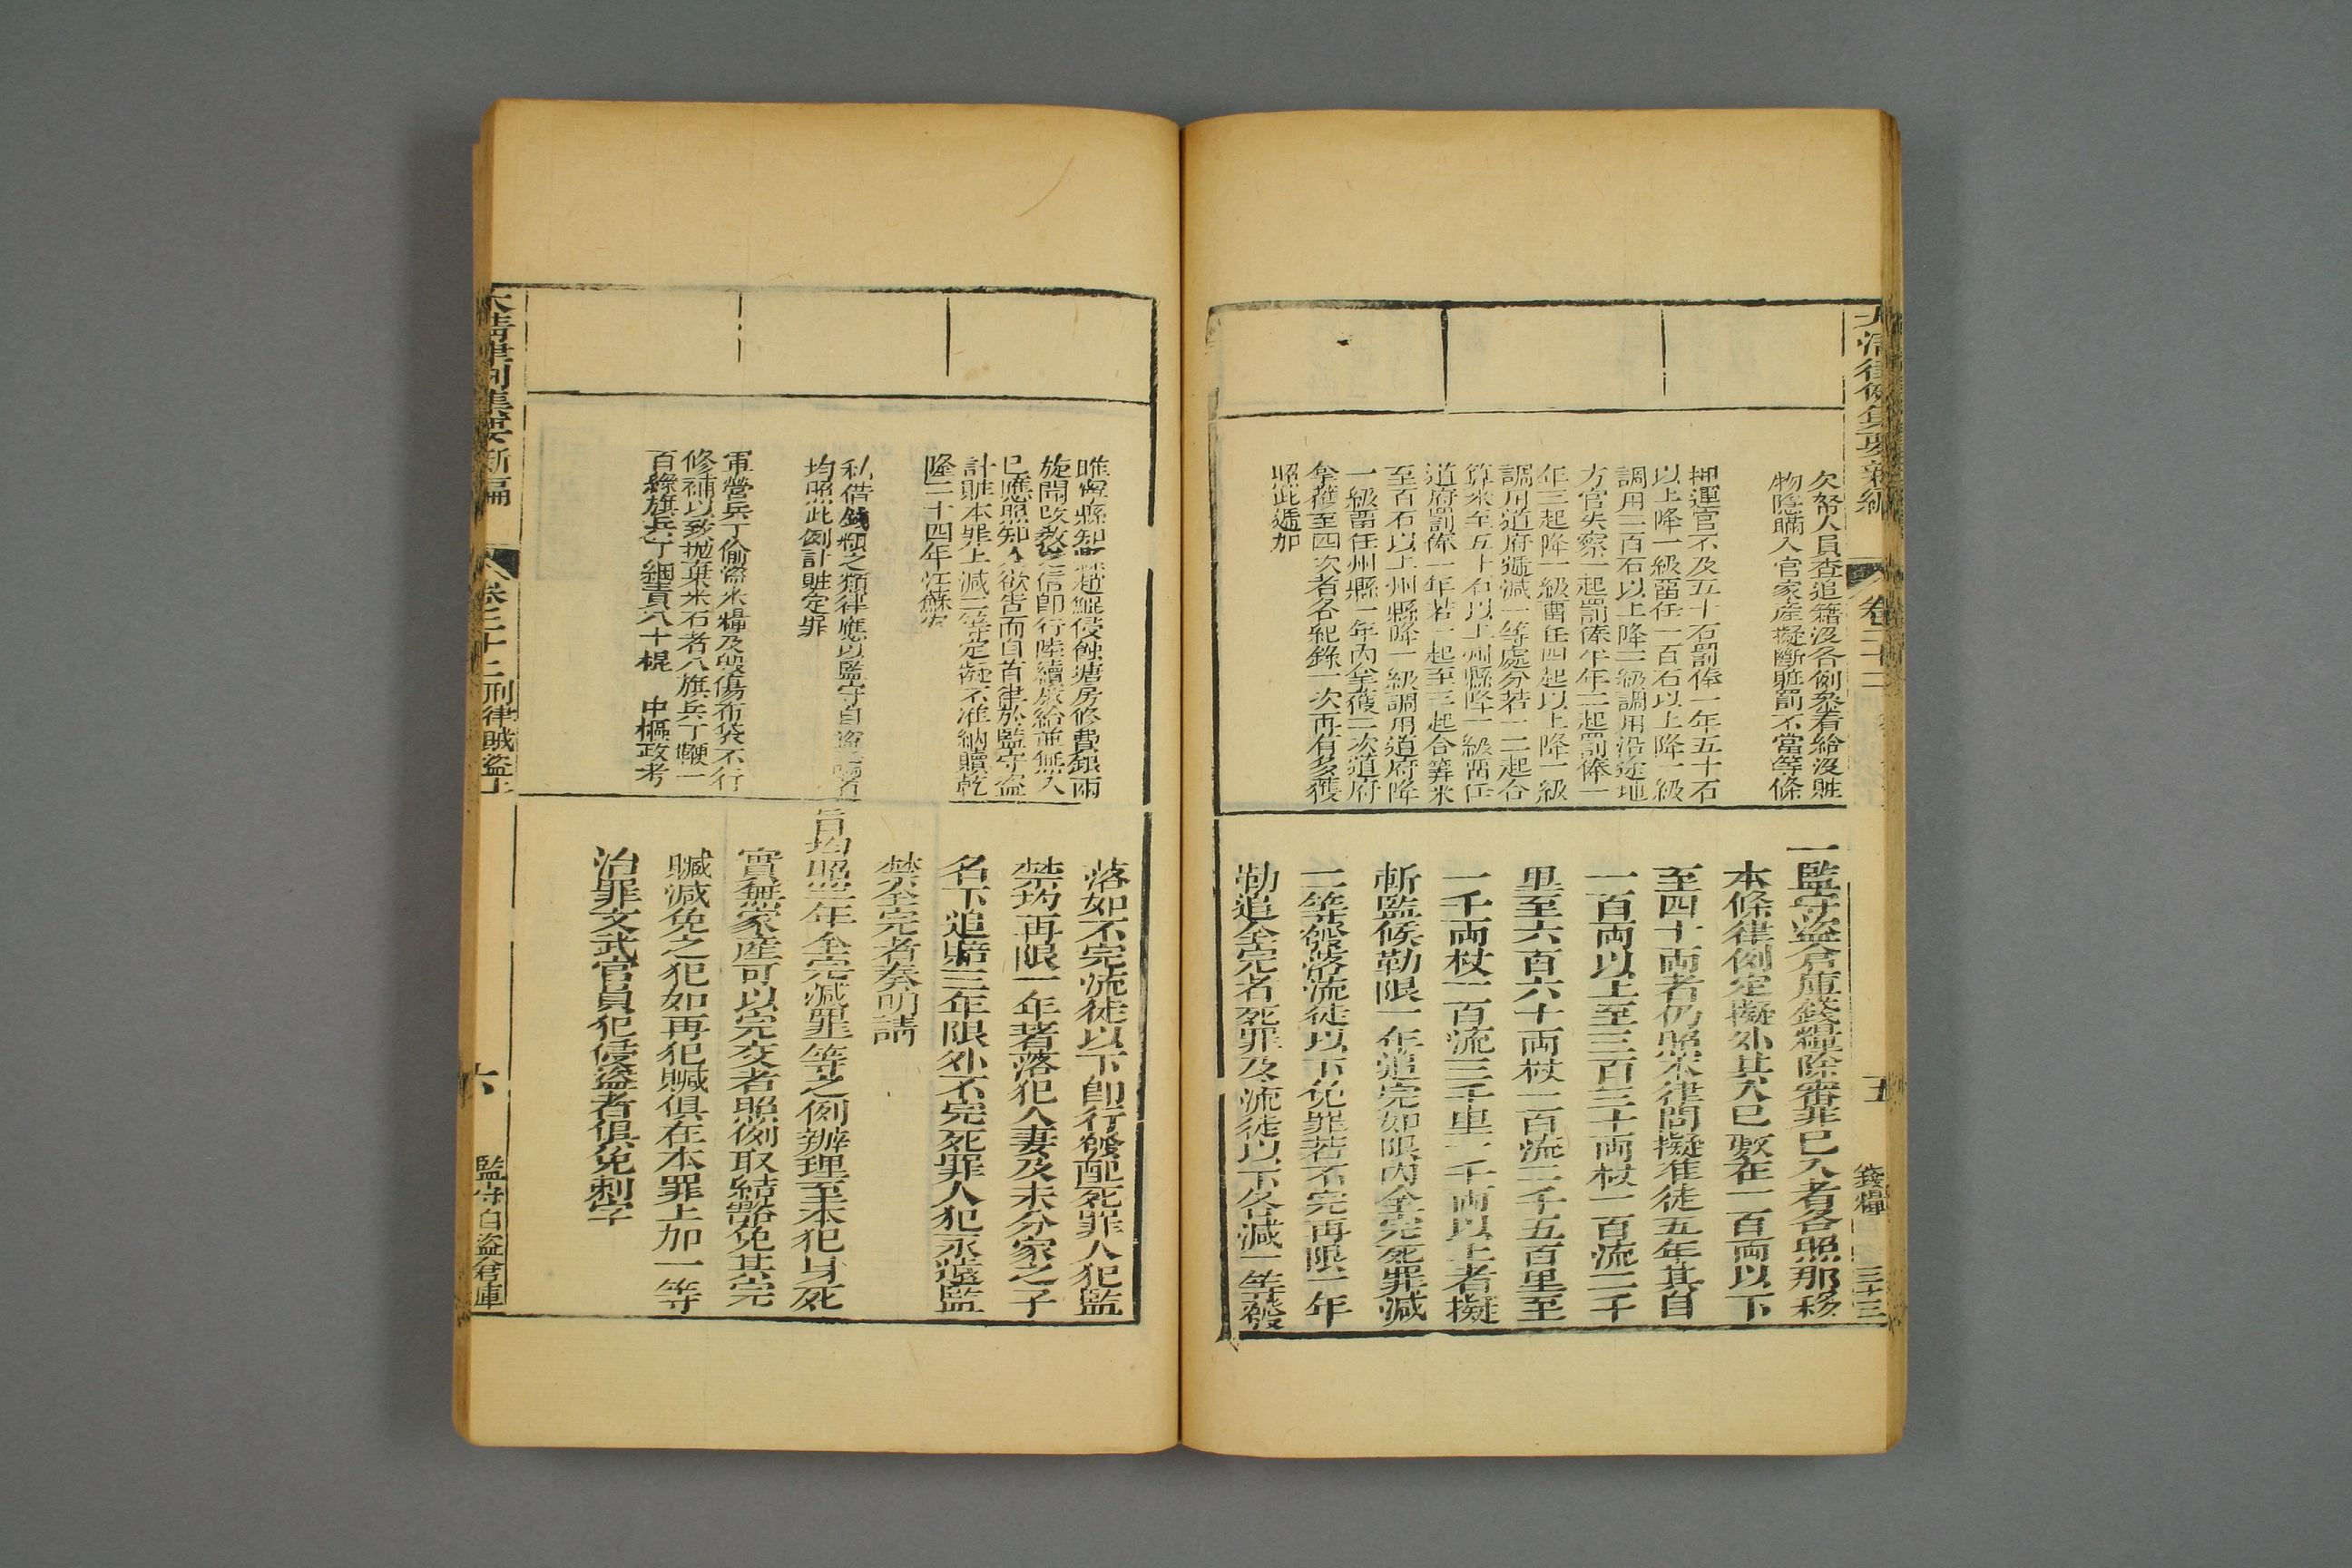 大清律例集要新編
卷二十二
五
錢糧
三十三
欠帑人員查追籍沒各例參看給沒贓
物隱瞞入官家產擬斷贓罰不當等條
押運官不及五十石罰俸一年五十石
以上降一級留任一百石以上降一級
調用二百石以上降二級調用沿途地
方官失察一起罰俸半年二起罰俸一
年三起降一級留任四起以上降一級
調用道府遞減一等處分若一二起合
算米至五十石以上州縣降一級留任
道府罰俸一年若一起至三起合算米
至百石以上州縣降一級調用道府降
一級留任州縣一年內拿獲二次道府
拿獲至四次者各紀錄一次再有多獲
照此遞加
一監守盜倉庫錢糧除審非已入者各照那移
本條律例定擬外其入已數在一百兩以下
至四十兩者仍照本律問擬准徒五年其自
一百兩以上至三百三十兩杖一百流二千
里至六百六十兩杖一百流二千五百里至
一千兩杖一百流三千里一千兩以上者擬
斬監候勒限一年追完如限內全完死罪減
二等發落流徒以下免罪若不完再限一年
勒追全完者死罪及流徒以下各減一等發
睢寧縣知縣趙鯤侵蝕塘房修費銀兩
旋聞改教信即行陸續放給並無入
已應照知人欲告而自首律於監守盜
計贓本罪上減二等定擬不准納贖乾
隆二十四年江蘇案
私借錢糧之類律應以監守自盜論者
均照此例計贓定罪
軍營兵丁偷盜米糧及毀傷布袋不行
修補以致拋棄米石者八旗兵丁鞭一
百綠旗兵丁綑責八十棍　中樞政考
落如不完流徒以下即行發配死罪人犯監
禁均再限一年著落犯人妻及未分家之子
名下追賠三年限外不完死罪人犯永遠監
禁全完者奏明請
旨均照二年全完減罪一等之例辦理至本犯身死
實無家產可以完交者照例取結豁免其完
贓減免之犯如再犯贓俱在本罪上加一等
治罪文武官員犯侵盜者俱免刺字
大清律例集要新編
卷二十二刑律賊盜上
六
監守自盜倉庫